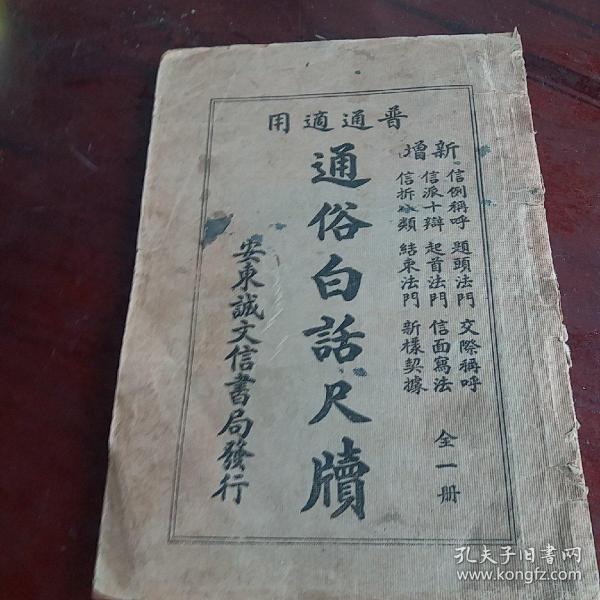 普通適用
新增
信例稱呼 題頭法門 交際稱呼
信派十辯 起首法門 信面寫法
信折 類 結束法門 新樣契據
全一册
通俗白話尺牘
安東誠文信書局發行
孔夫子旧书网
www.kongfz.com